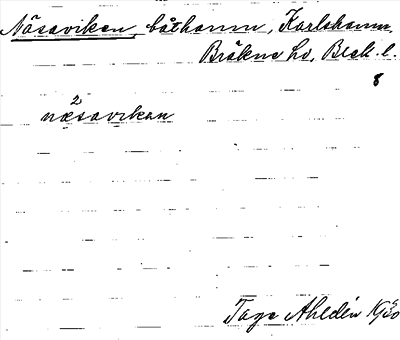 Näsaviken, båthamn, Karlshamn,
Bräkne hd, Blek. l.
8
2
næsavikan
Tage Ahldén 1930